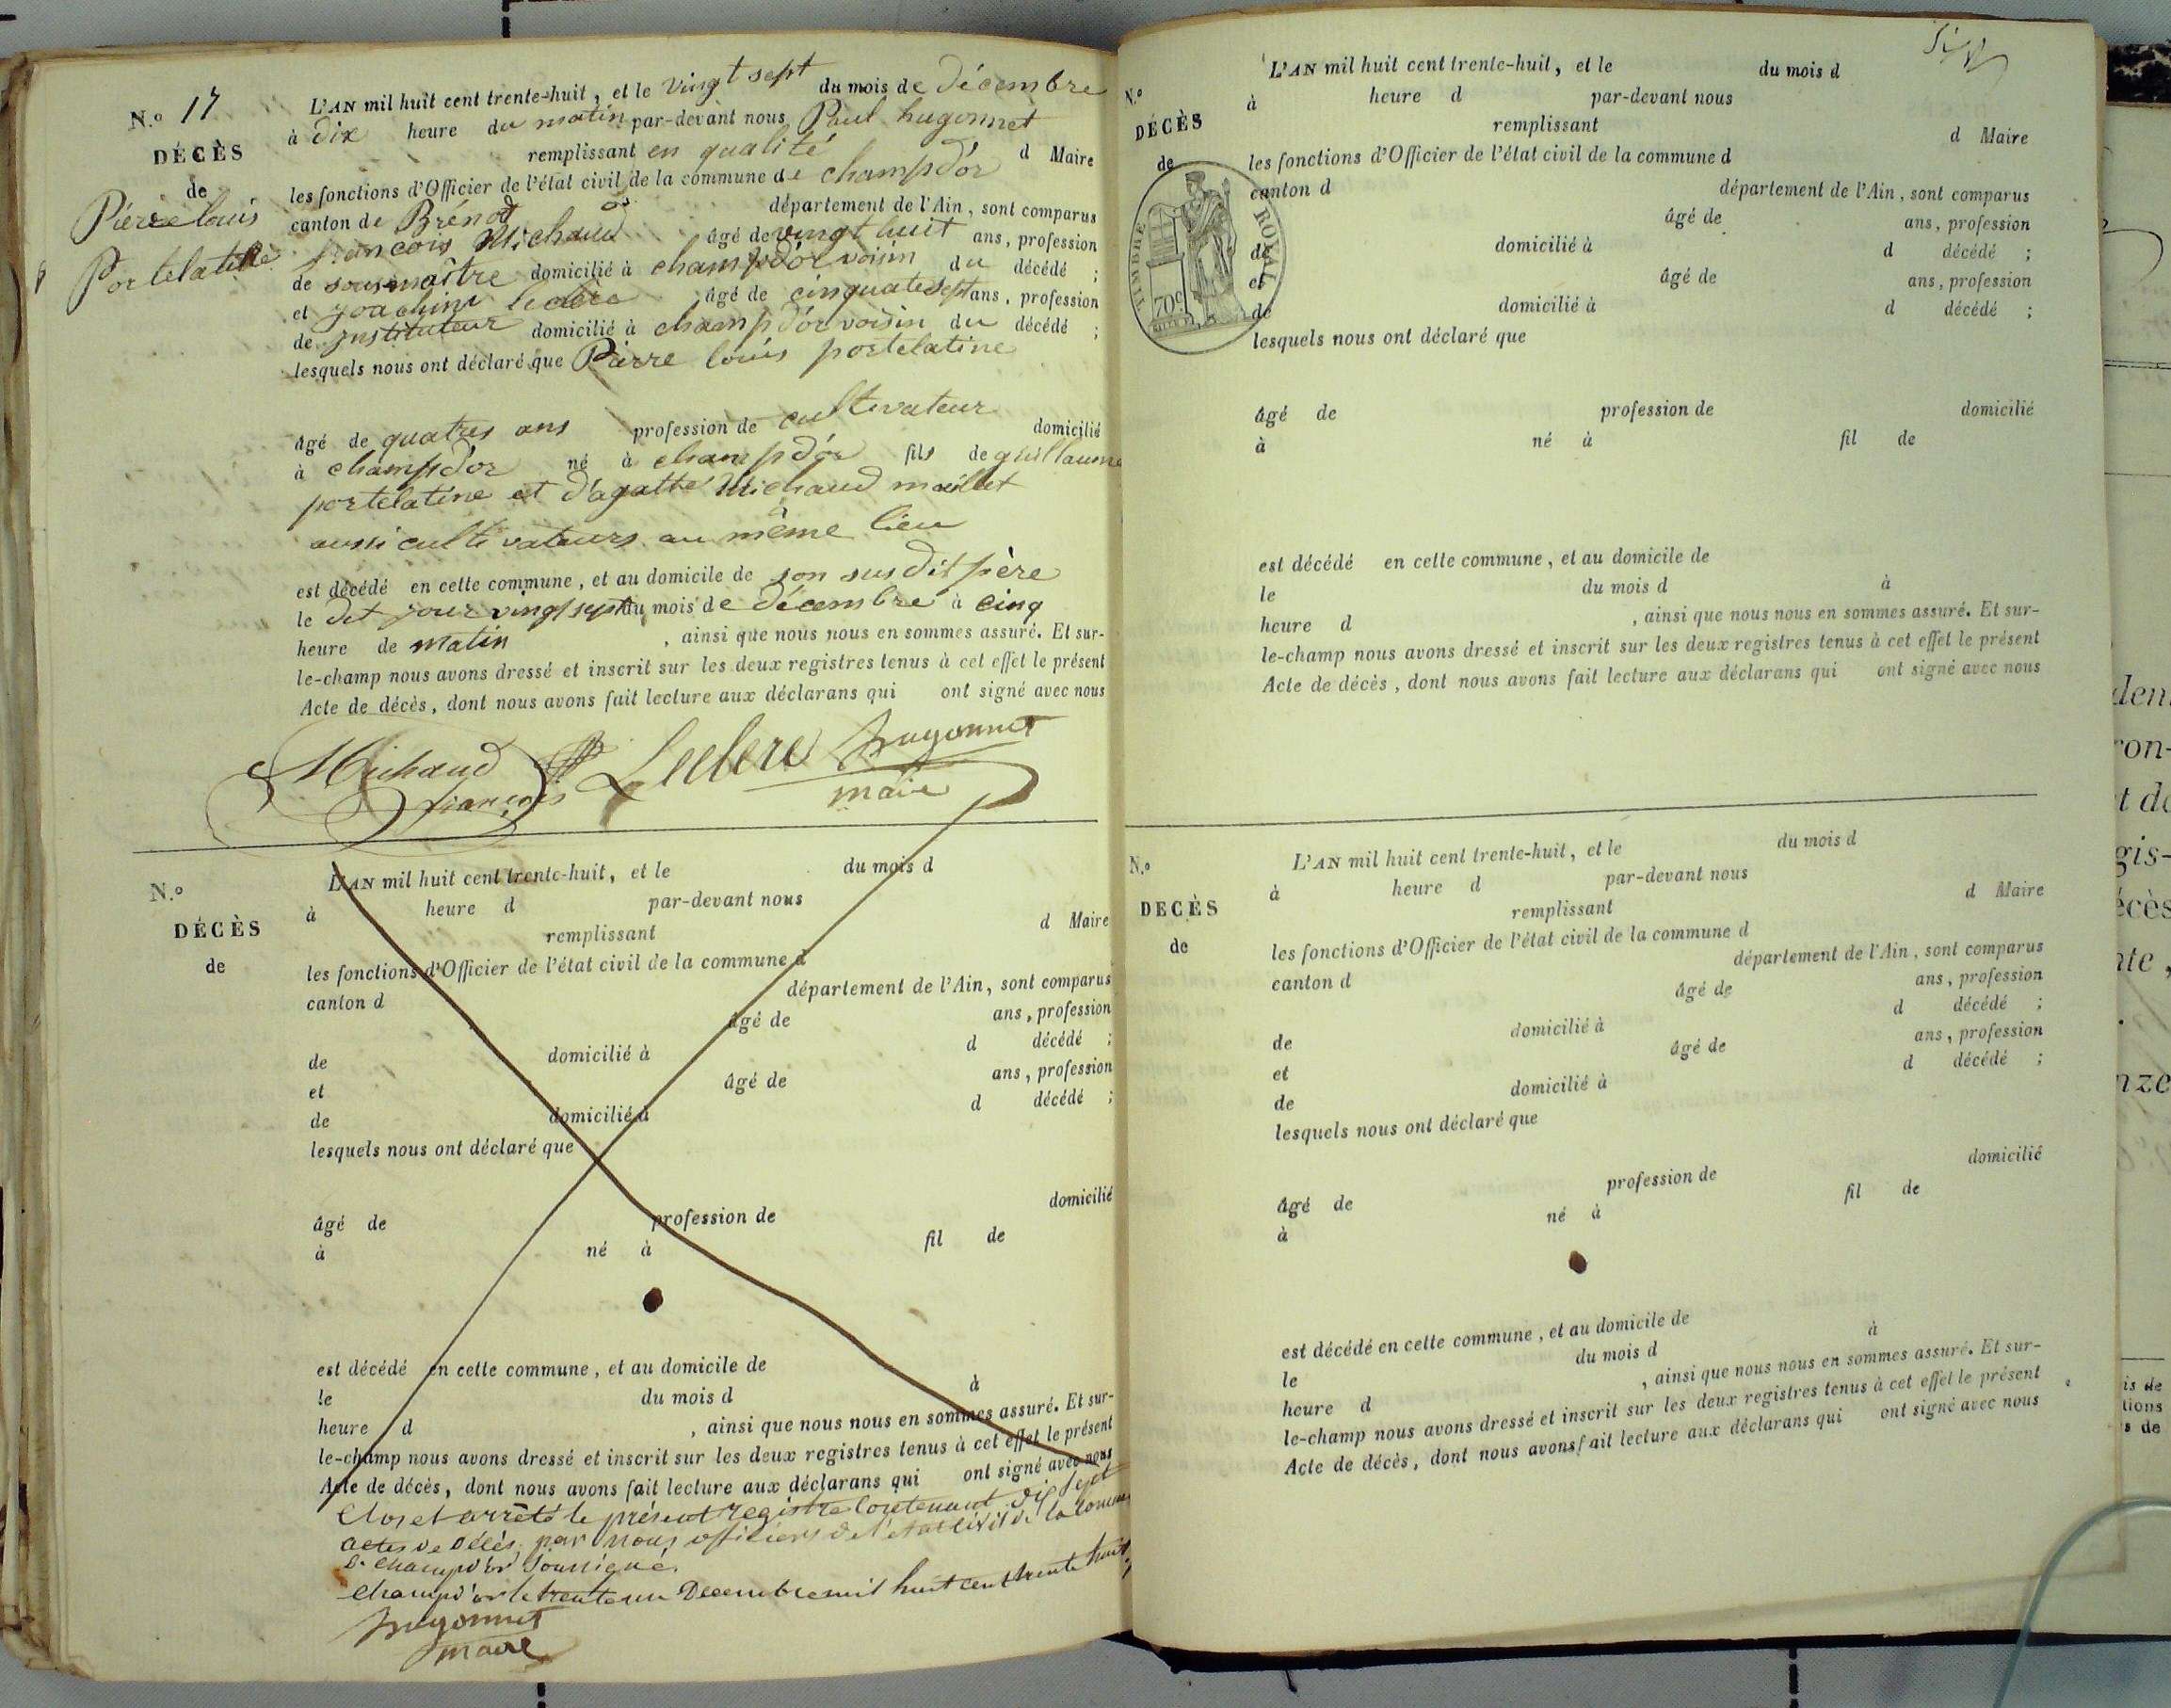 N.º 17
DÉCÈS
de
Pierre louis
Portelatine
L'AN mil huit cent trente-huit, et le vingt sept du mois de décembre
à dix heure du matin par-devant nous Paul hugonnet
remplissant en qualité d Maire
les fonctions d'Officier de l'état civil de la commune de champd'or
canton de Brénod département de l'Ain, sont comparus
francois Michaud âgé de vingt huit ans, profession
de sousmaître domicilié à champd'or voisin du décédé ;
et joachim leclere âgé de cinquatesept ans, profession
de instituteur domicilié à champd'or voisin du décédé ;
lesquels nous ont déclaré que Pierre louis portelatine
âgé de quatres ans profession de cultivateur domicilié
à champd'or né à champd'or fils de guillaume
portelatine et d'agatte Michaud maillet
aussi cultivateurs au même lieu
est décédé en cette commune, et au domicile de son susdit père
le dit jour vingt sept du mois de décembre à cinq
heure de matin , ainsi que nous nous en sommes assuré. Et sur-
le-champ nous avons dressé et inscrit sur les deux registres tenus à cet effet le présent
Acte de décès, dont nous avons fait lecture aux déclarans qui ont signé avec nous
Michaud Leclerc hugonnet
francois maire
N.º
DÉCÈS
de
L'AN mil huit cent trente-huit, et le du mois d
à heure d par-devant nous
remplissant d Maire
les fonctions d'Officier de l'état civil de la commune d
canton d département de l'Ain, sont comparus
âgé de ans, profession
de domicilié à d décédé ;
et âgé de ans, profession
de domicilié à d décédé ;
lesquels nous ont déclaré que
âgé de profession de domicilié
à né à fil de
est décédé en cette commune, et au domicile de
le du mois d à
heure d , ainsi que nous nous en sommes assuré. Et sur-
le-champ nous avons dressé et inscrit sur les deux registres tenus à cet effet le présent
Acte de décès, dont nous avons fait lecture aux déclarans qui ont signé avec nous
Clos et arrêté le présent registre Contenant dix sept
actes de Décès, par nous officiers de l'état civil de la commune
de Champd'or Soussigné.
Champd'or le trente un Decembre mil huit cent trente huit
hugonnet
maire
L'AN mil huit cent trente-huit, et le du mois d
N.º
à heure d par-devant nous
DÉCÈS
remplissant d Maire
de
les fonctions d'Officier de l'état civil de la commune d
canton d département de l'Ain, sont comparus
âgé de ans, profession
de domicilié à d décédé ;
et âgé de ans, profession
de domicilié à d décédé ;
TIMBRE ROYAL
70c
lesquels nous ont déclaré que
âgé de profession de domicilié
à né à fil de
est décédé en cette commune, et au domicile de
le du mois d à
heure d , ainsi que nous nous en sommes assuré. Et sur-
le-champ nous avons dressé et inscrit sur les deux registres tenus à cet effet le présent
Acte de décès, dont nous avons fait lecture aux déclarans qui ont signé avec nous
N.º
DECÈS
de
L'AN mil huit cent trente-huit, et le du mois d
à heure d par-devant nous
remplissant d Maire
les fonctions d'Officier de l'état civil de la commune d
canton d département de l'Ain, sont comparus
âgé de ans, profession
de domicilié à d décédé ;
et âgé de ans, profession
de domicilié à d décédé ;
lesquels nous ont déclaré que
âgé de profession de domicilié
à né à fil de
est décédé en cette commune, et au domicile de
le du mois d à
heure d , ainsi que nous nous en sommes assuré. Et sur-
le-champ nous avons dressé et inscrit sur les deux registres tenus à cet effet le présent
Acte de décès, dont nous avons fait lecture aux déclarans qui ont signé avec nous